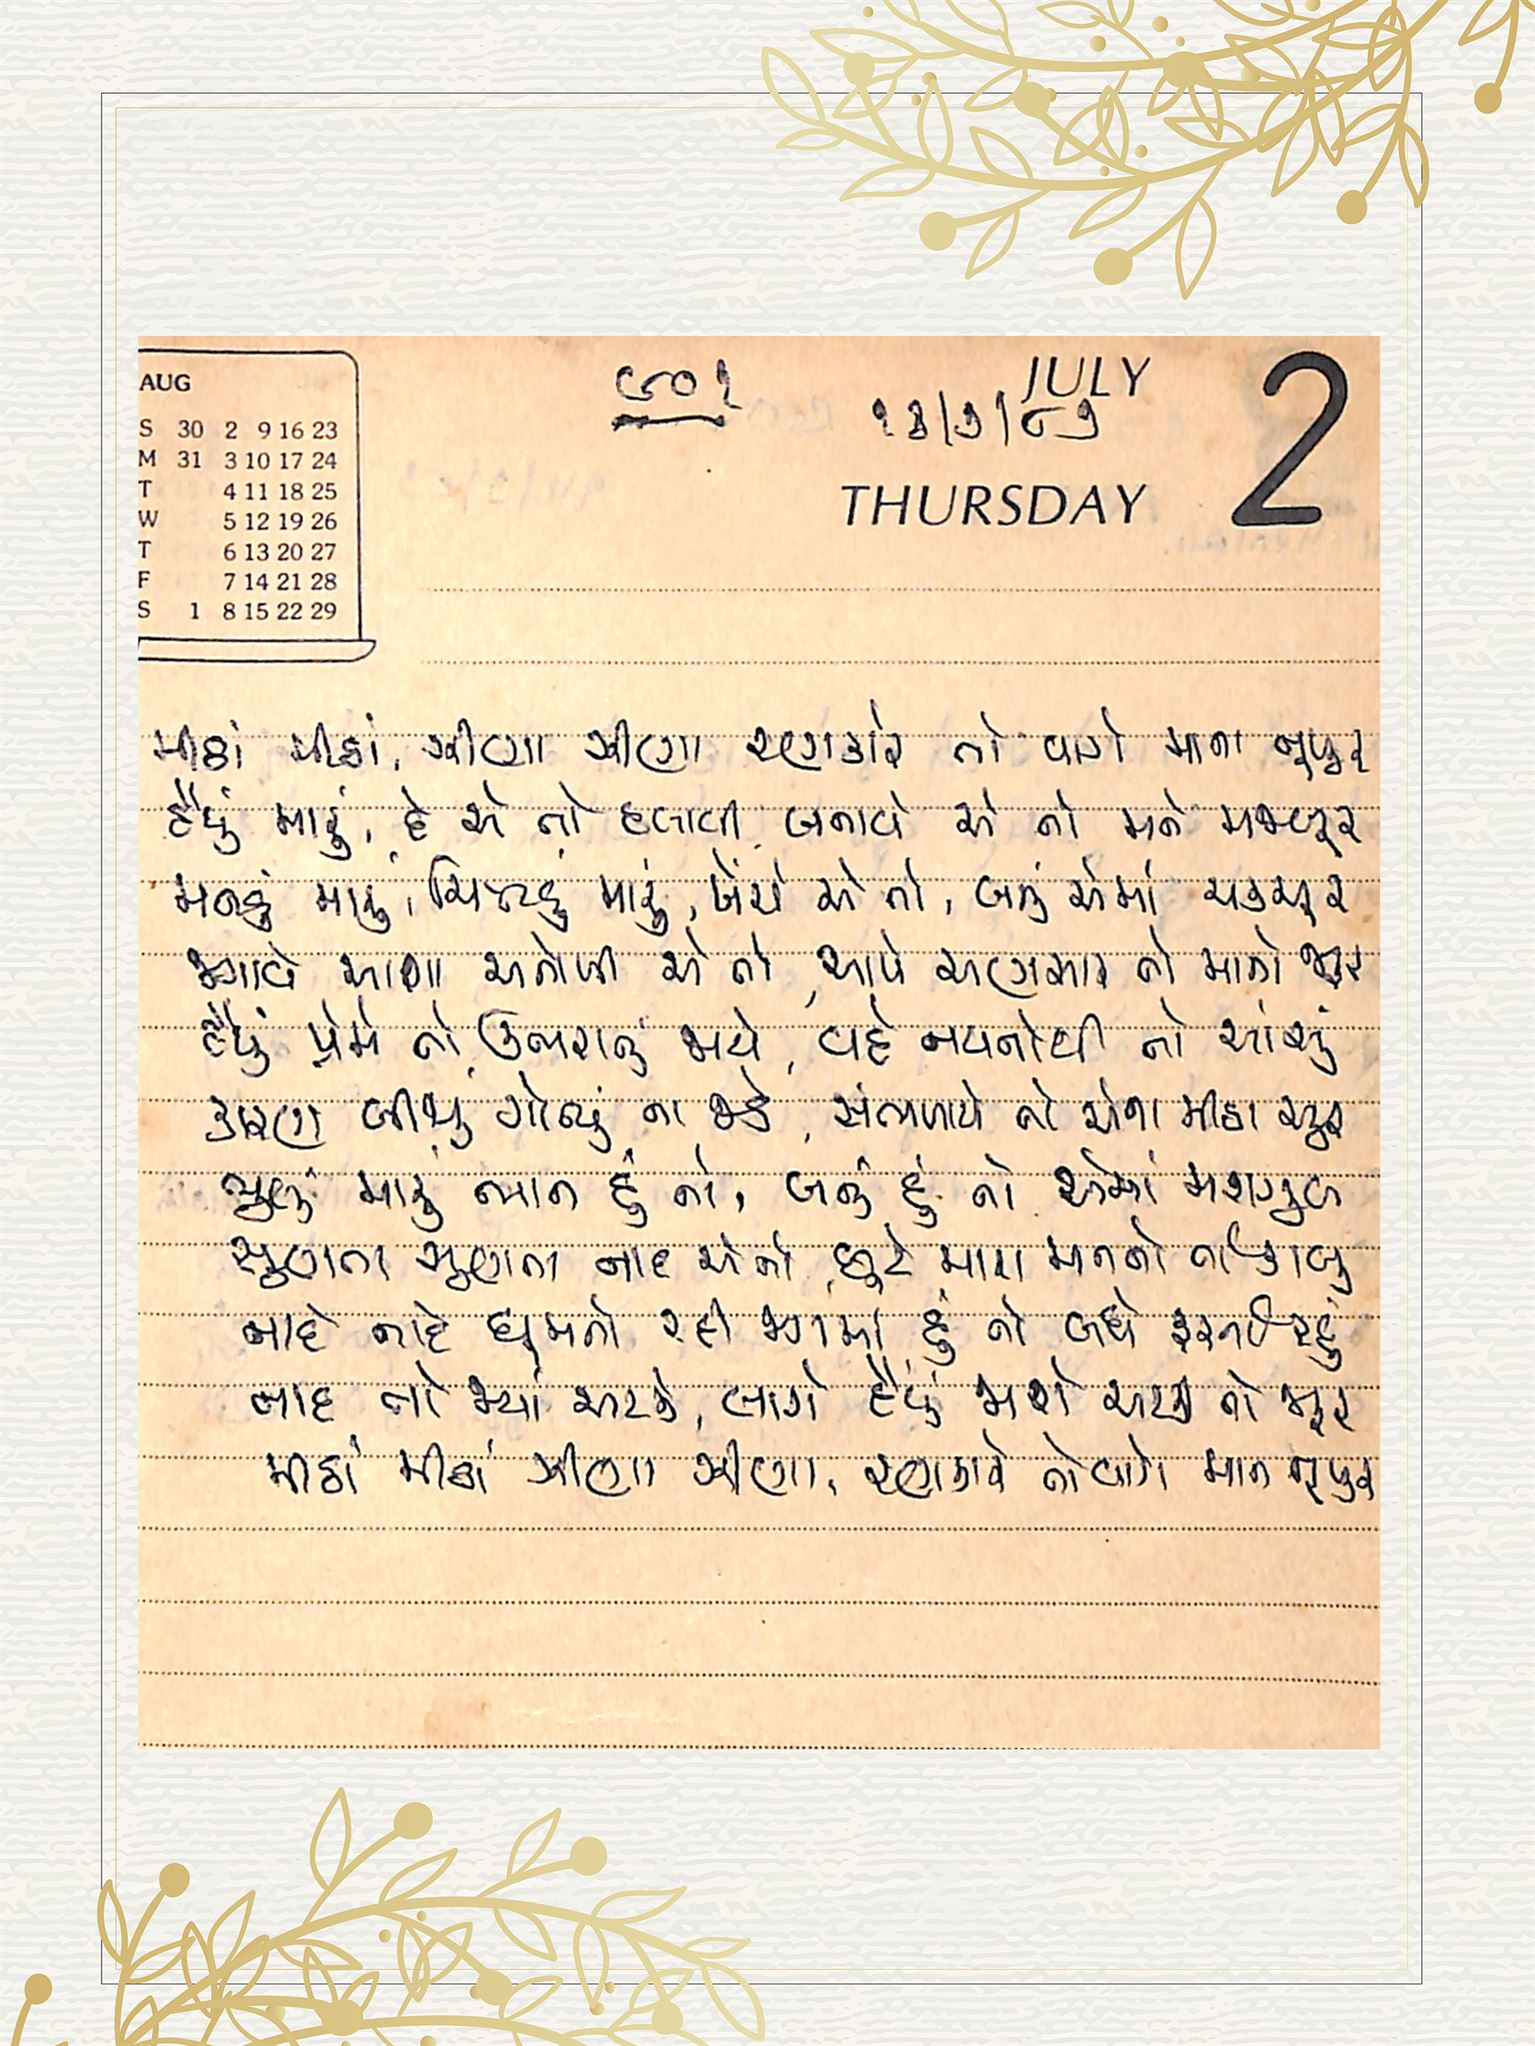 AUG
S 30 2 9 16 23
M 31 3 10 17 24
T 4 11 18 25
W 5 12 19 26
T 6 13 20 27
F 7 14 21 28
S 1 8 15 22 29
૯૦૧
JULY 2
૧૩/૭/૮૭
THURSDAY
મીઠાં મીઠાં, ઝીણા ઝીણા રણકાર તો વાગે માના નૂપુર
હૈયું મારું, હે એ તો હલાવી બનાવે એ તો મને મજબૂર
મનડું મારું, ચિત્તડું મારું, ખેંચે એ તો, બનું એમાં ચકચૂર
જગાવે આશા અનોખી એ તો, આપે અણસાર તો માનો જરૂર
હૈયું પ્રેમે તો ઉભરાતું જાયે, વહે નયનોથી તો આંસું
કારણ બીજું ગોત્યું ના જડે, સંભળાયે તો એના મીઠા સૂર
ભુલું મારું ભાન હું તો, બનું હું તો એમાં મશગુલ
સુણતા સુણતા નાદ એનો, છુટે મારા મનનો તો કાબુ
નાદે નાદે ઘૂમતો રહી જગમાં હું તો બધે ફરતો રહું
નાદ તો જ્યાં અટકે, લાગે હૈયું જાશે અટકી તો જરૂર
મીઠાં મીઠાં ઝીણા ઝીણા, રણકાર તો વાગે માના નૂપુર